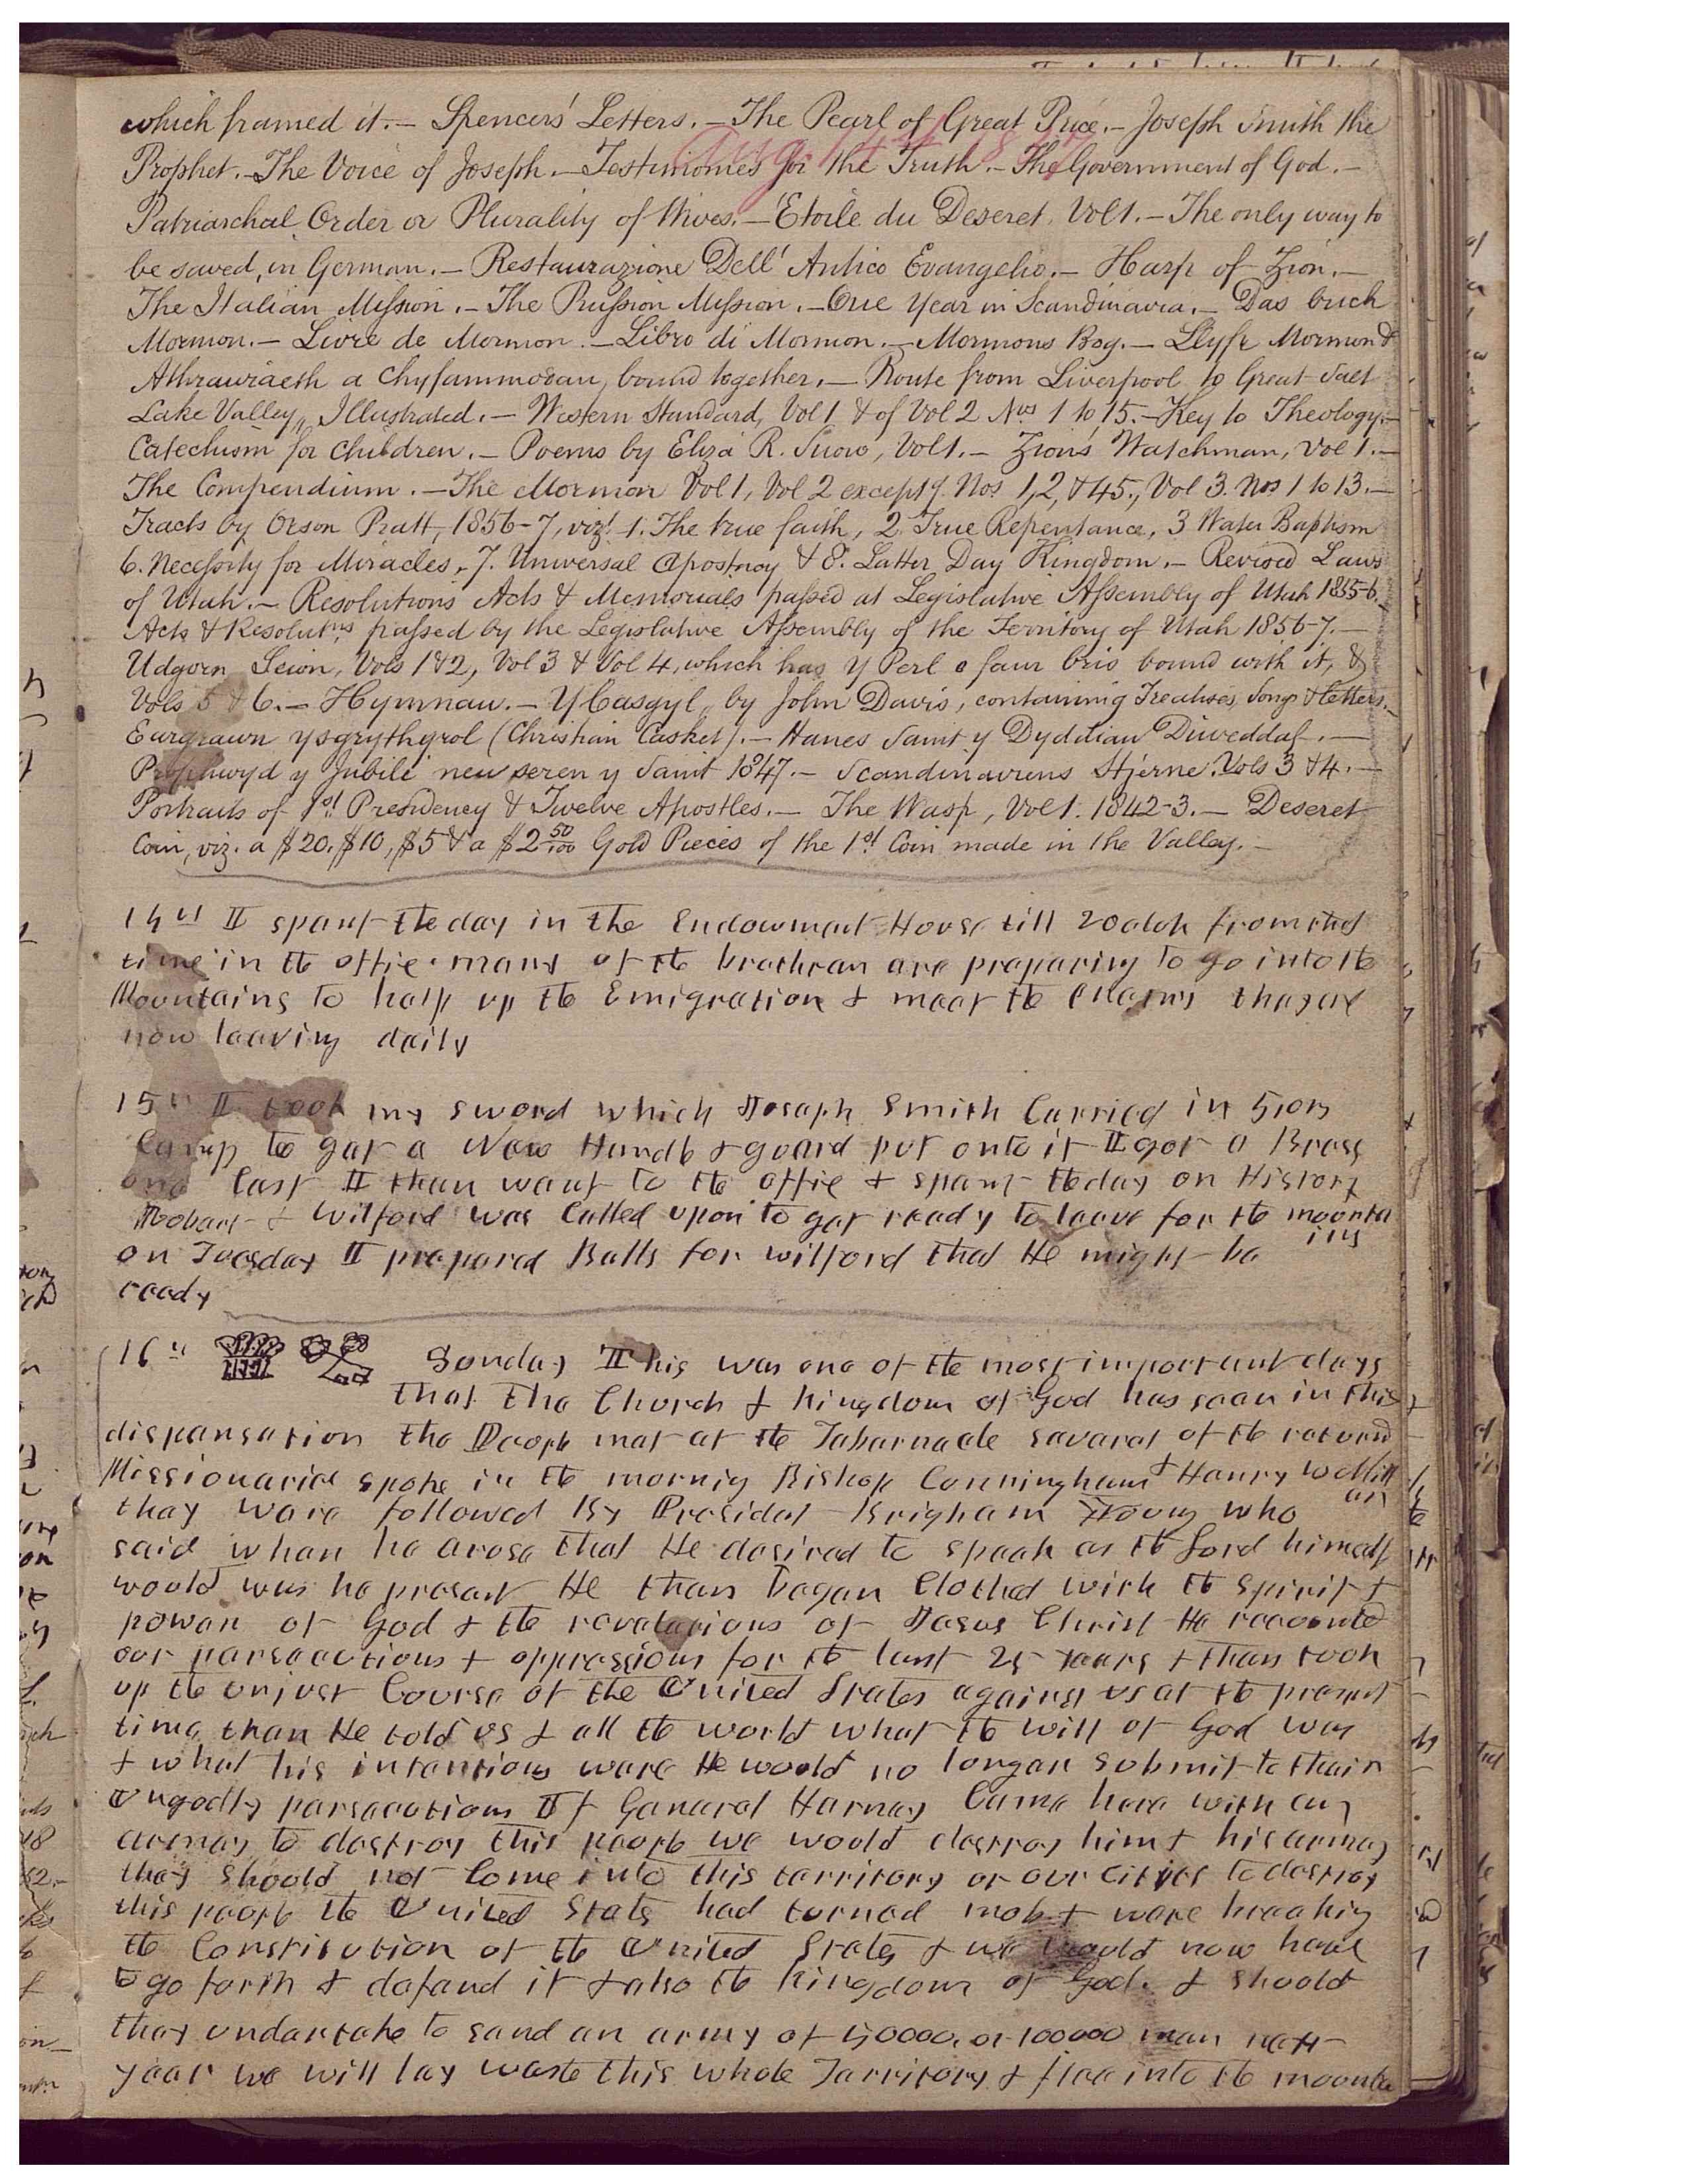 which framed it.— Spencers' Letters.— The Pearl of Great Price.— Joseph Smith the
Prophet.— The Voice of Joseph.— Testimonies for the Truth.— The Government of God.—
Patriarchal Order or Plurality of Wives.— Etoile du Deseret, Vol 1.— The only way to
be saved, in German.— Restaurazione Dell' Antico Evangelio.— Harp of Zion.—
The Italian Mission.— The Prussion Mission.— One Year in Scandinavia.— Das buch
Mormon.— Livre de Mormon.— Libro di Mormon.— Mormons Bog.— Llyfr Mormon &
Athrawiaeth a Chyfammodau, bound together.— Route from Liverpool to Great Salt
Lake Valley, Illustrated.— Western Standard, Vol 1 & of Vol 2 Nos 1 to 15.— Key to Theology.—
Catechism for Children.— Poems by Eliza R. Snow, Vol 1.— Zion's Watchman, Vol 1.—
The Compendium.— The Mormon Vol 1, Vol 2 except Nos 1, 2, & 45., Vol 3. Nos 1 to 13.—
Tracts by Orson Pratt, 1856-7, viz! 1. The true faith, 2 True Repentance, 3 Water Baptism
6. Necessity for Miracles, 7. Universal Apostacy & 8. Latter Day Kingdom.— Revised Laws
of Utah.— Resolutions Acts & Memorials passed at Legislative Assembly of Utah 1855-6.
Acts & Resolutns passed by the Legislative Assembly of the Territory of Utah 1856-7.—
Udgorn Seion, Vols 1 & 2, Vol 3 & Vol 4, which has y Perl o fawr bris bound with it, &
Vols 5 & 6.— Hymnau.— Y Casgyl, by John Davis, containing Treatises, Songs & letters.—
Eurgrawn ysgrythyrol (Christian Casket).— Hanes Saint y Dyddiau Diweddaf.—
Prophwyd y Jubili neu seren y Saint 1847.— Scandinaviens Stjerne. Vols 3 & 4.—
Portraits of 1st Presidency & Twelve Apostles.— The Wasp, Vol 1. 1842-3.— Deseret
Coin, viz. a $20, $10, $5 & a $2 50/100 Gold Pieces of the 1st Coin made in the Valley.—
14th I spent the day in the Endowment House till 2 oclok from that
time in the office. many of the brethren are preparing to go into the
Mountains to help up the Emigration & meet the Enemy they are
now leaving daily
15th I took my sword which Joseph Smith Carried in Zions
Camp to get a New Handle & guard put onto it I got a Brass
one Cast I then went to the office & spent the day on History
Robert & Wilford was Called upon to get ready to leave for the mounta
ins
on Tuesday I prepared Balls for wilford that He might be
ready
16th Sunday This was one of the most important days
that the Church & kingdom of God has seen in this
dispensation the People met at the Tabernacle several of the returnd
Missionaries spoke in the mornig Bishop Cunningham & Henry
they were followed By Presidet Brigham Young who
said when he arose that He desired to speak as the Lord himself
would was he present He then began Clothed with the spirit &
power of God & the revelations of Jesus Christ He recounted
our persecutions & oppressions for the last 25 years & then took
up the unjust Course of the United States against us at the present
time, then He told us & all the world what the will of God was
& what his intentions were He would no longer submit to their
Ungodly persecutions If General Harney Came here with any
armey to destroy this people we would destroy him & his armey
they should not Come into this territory or our Cities to destroy
this people the United States had turned mob & were breakig
the Constitution of the United States & we would now have
to go forth & defend it & also the kingdom of God. & should
they undertake to send an army of 50000. or 100000 men next
year we will lay waste this whole Territory & flee into the mounta